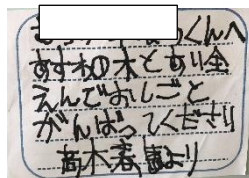 くんへ
すずわの木とすり会
えんでおしごと
がんばってください
高木 より